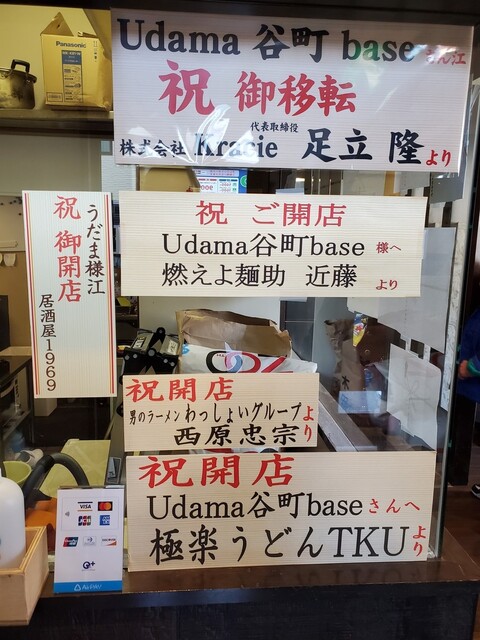 Panasonic
Udama 谷町 base さん江
祝 御移転
代表取締役
株式会社 Kracie 足立 隆 より
祝 ご開店
Udama谷町base 様へ
燃えよ麺助 近藤 より
うだま様江
祝 御開店
居酒屋1969
祝開店
男のラーメンわっしょいグループより
西原忠宗
祝開店
Udama谷町baseさんへ
極楽うどんTKUより
VISA
JCB
AirPAY